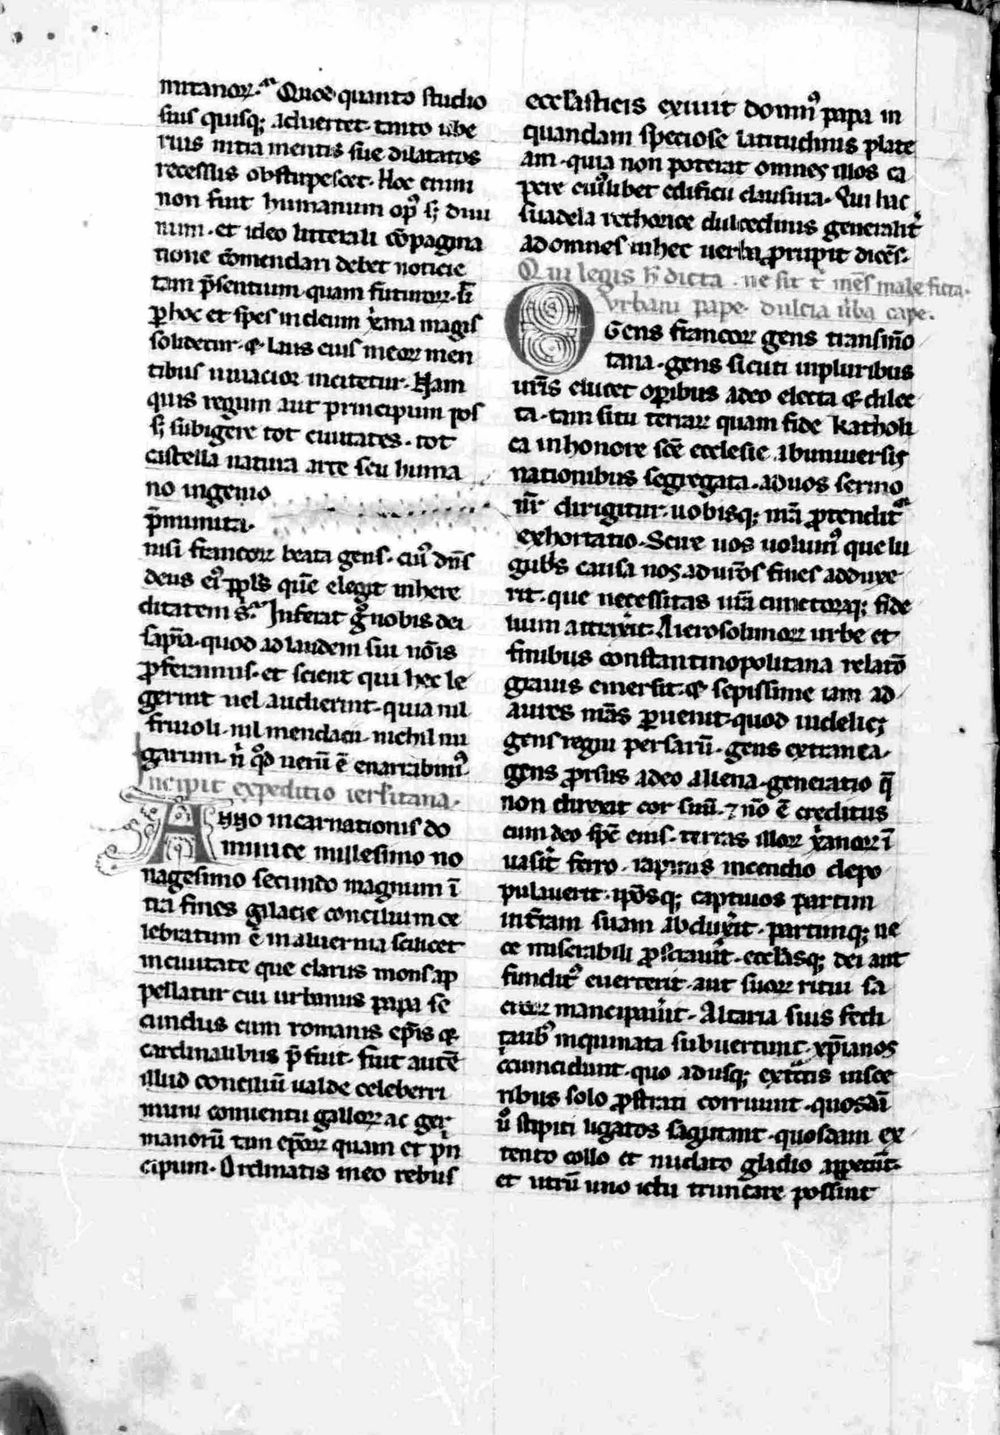 mitanoꝝ. Quoꝫ quanto studio
suis quisqꝫ aduertet. tanto ube
rius intra mentis sue dilatatos
recessus obstupescet. Hoc enim
non fuit humanum opꝰ sꝫ diui
num. et ideo litterali cōpagina
tione cōmendari debet noticie
tam p̄sentium quam futuroꝝ. ut
ꝑ hoc et spes in deum xp̄iana magis
solidetur. & laus eius in eoꝝ men
tibus uiuacior incitetur. Nam
quis regum aut principum pos
sꝫ subigere tot ciuitates. tot
castella natura arte seu huma
no ingenio
p̄munita.
nisi francoꝝ beata gens. cuiꝰ dn̄s
deus eiꝰ ppl̄s quē elegit in here
ditatem s. Inserat gͦ nobis dei
sapīa. quod ad laudem sui nōis
ꝓferamus. et scient qui hec le
gerint uel audierint. quia nil
friuoli. nil mendacii. nichil nu
garum. n̄ qd̄ uerū ē enarrabimꝰ.
Incipit expeditio ier̄litana.
Anno incarnationis do
minice millesimo no
nagesimo secundo magnum ī
tra fines gallacie concilium ce
lebratum ē in aluernia scilicet
in ciuitate que clarus mons ap
pellatur cui urbanus papa se
cundus cum romanis ep̄is &
cardinalibus p̄fuit. fuit autē
illud conciliū ualde celeberri
mum conuentu galloꝝ ac ger
manorū tam ep̄oꝝ quam et p̄n
cipum. Ordinatis in eo rebus
eccl̄asticis exiuit domnꝰ papa in
quandam speciose latitudinis plate
am. quia non poterat omnes illos ca
pere cuiꝰlibet edificii clausura. Qui hac
suadela rethorice dulcedinis generalit̄
ad omnes in hec uerba ꝓrupit dicēs.
Qui legis h̄ dicta. ne sit t̄ mēs male ficta.
Vrbani pape dulcia ūba cape.
Gens francoꝝ gens transmō
tana. gens sicuti in pluribus
ur̄is elucet oꝑibus a deo electa & dilec
ta. tam situ terraꝝ quam fide katholi
ca in honore sc̄e ecclesie ab uniuersis
nationibus segregata. ad uos sermo
nr̄ dirigitur. uobisqꝫ nr̄a ꝓtenditͬ
exhortatio. Scire uos uolumꝰ que lu
gubꝭ causa nos ad ur̄os fines adduxe
rit. que necessitas ur̄a cunctoruqꝫ fide
lium attraxerit. A ierosolimoꝝ urbe et
finibus constantinopolitana relatō
grauis emersit. & sepissime iam ad
aures nr̄as ꝑuenit. quod uidelicꝫ
gens regni persarū. gens extranea.
gens ꝓrsus a deo aliena. generatio q̄
non direxit cor suū. ⁊ nō ē creditus
cum deo sp̄c eius. terras illoꝝ xp̄ianoꝝ ī
uasit̄ ferro. rapinis incendio depo
pulauerit. ip̄osqꝫ captiuos partim
in tr̄am suam abduxit̄. partimqꝫ ne
ce miserabili ꝓstrauit̄. eccl̄asqꝫ dei aut
funditꝰ euerterit. aut suoꝝ ritui sa
croꝝ mancipauit̄. Altaria suis fedi
tatibꝰ inquinata subuertunt. xp̄ianos
circuncidunt. quo adusqꝫ extctis uisce
ribus solo ꝓstrati corruunt. quosdā
ūͦ stipiti ligatos sagittant. quosdam ex
tento collo et nudato gladio appetūt.
et utrū uno ictu truncare possint